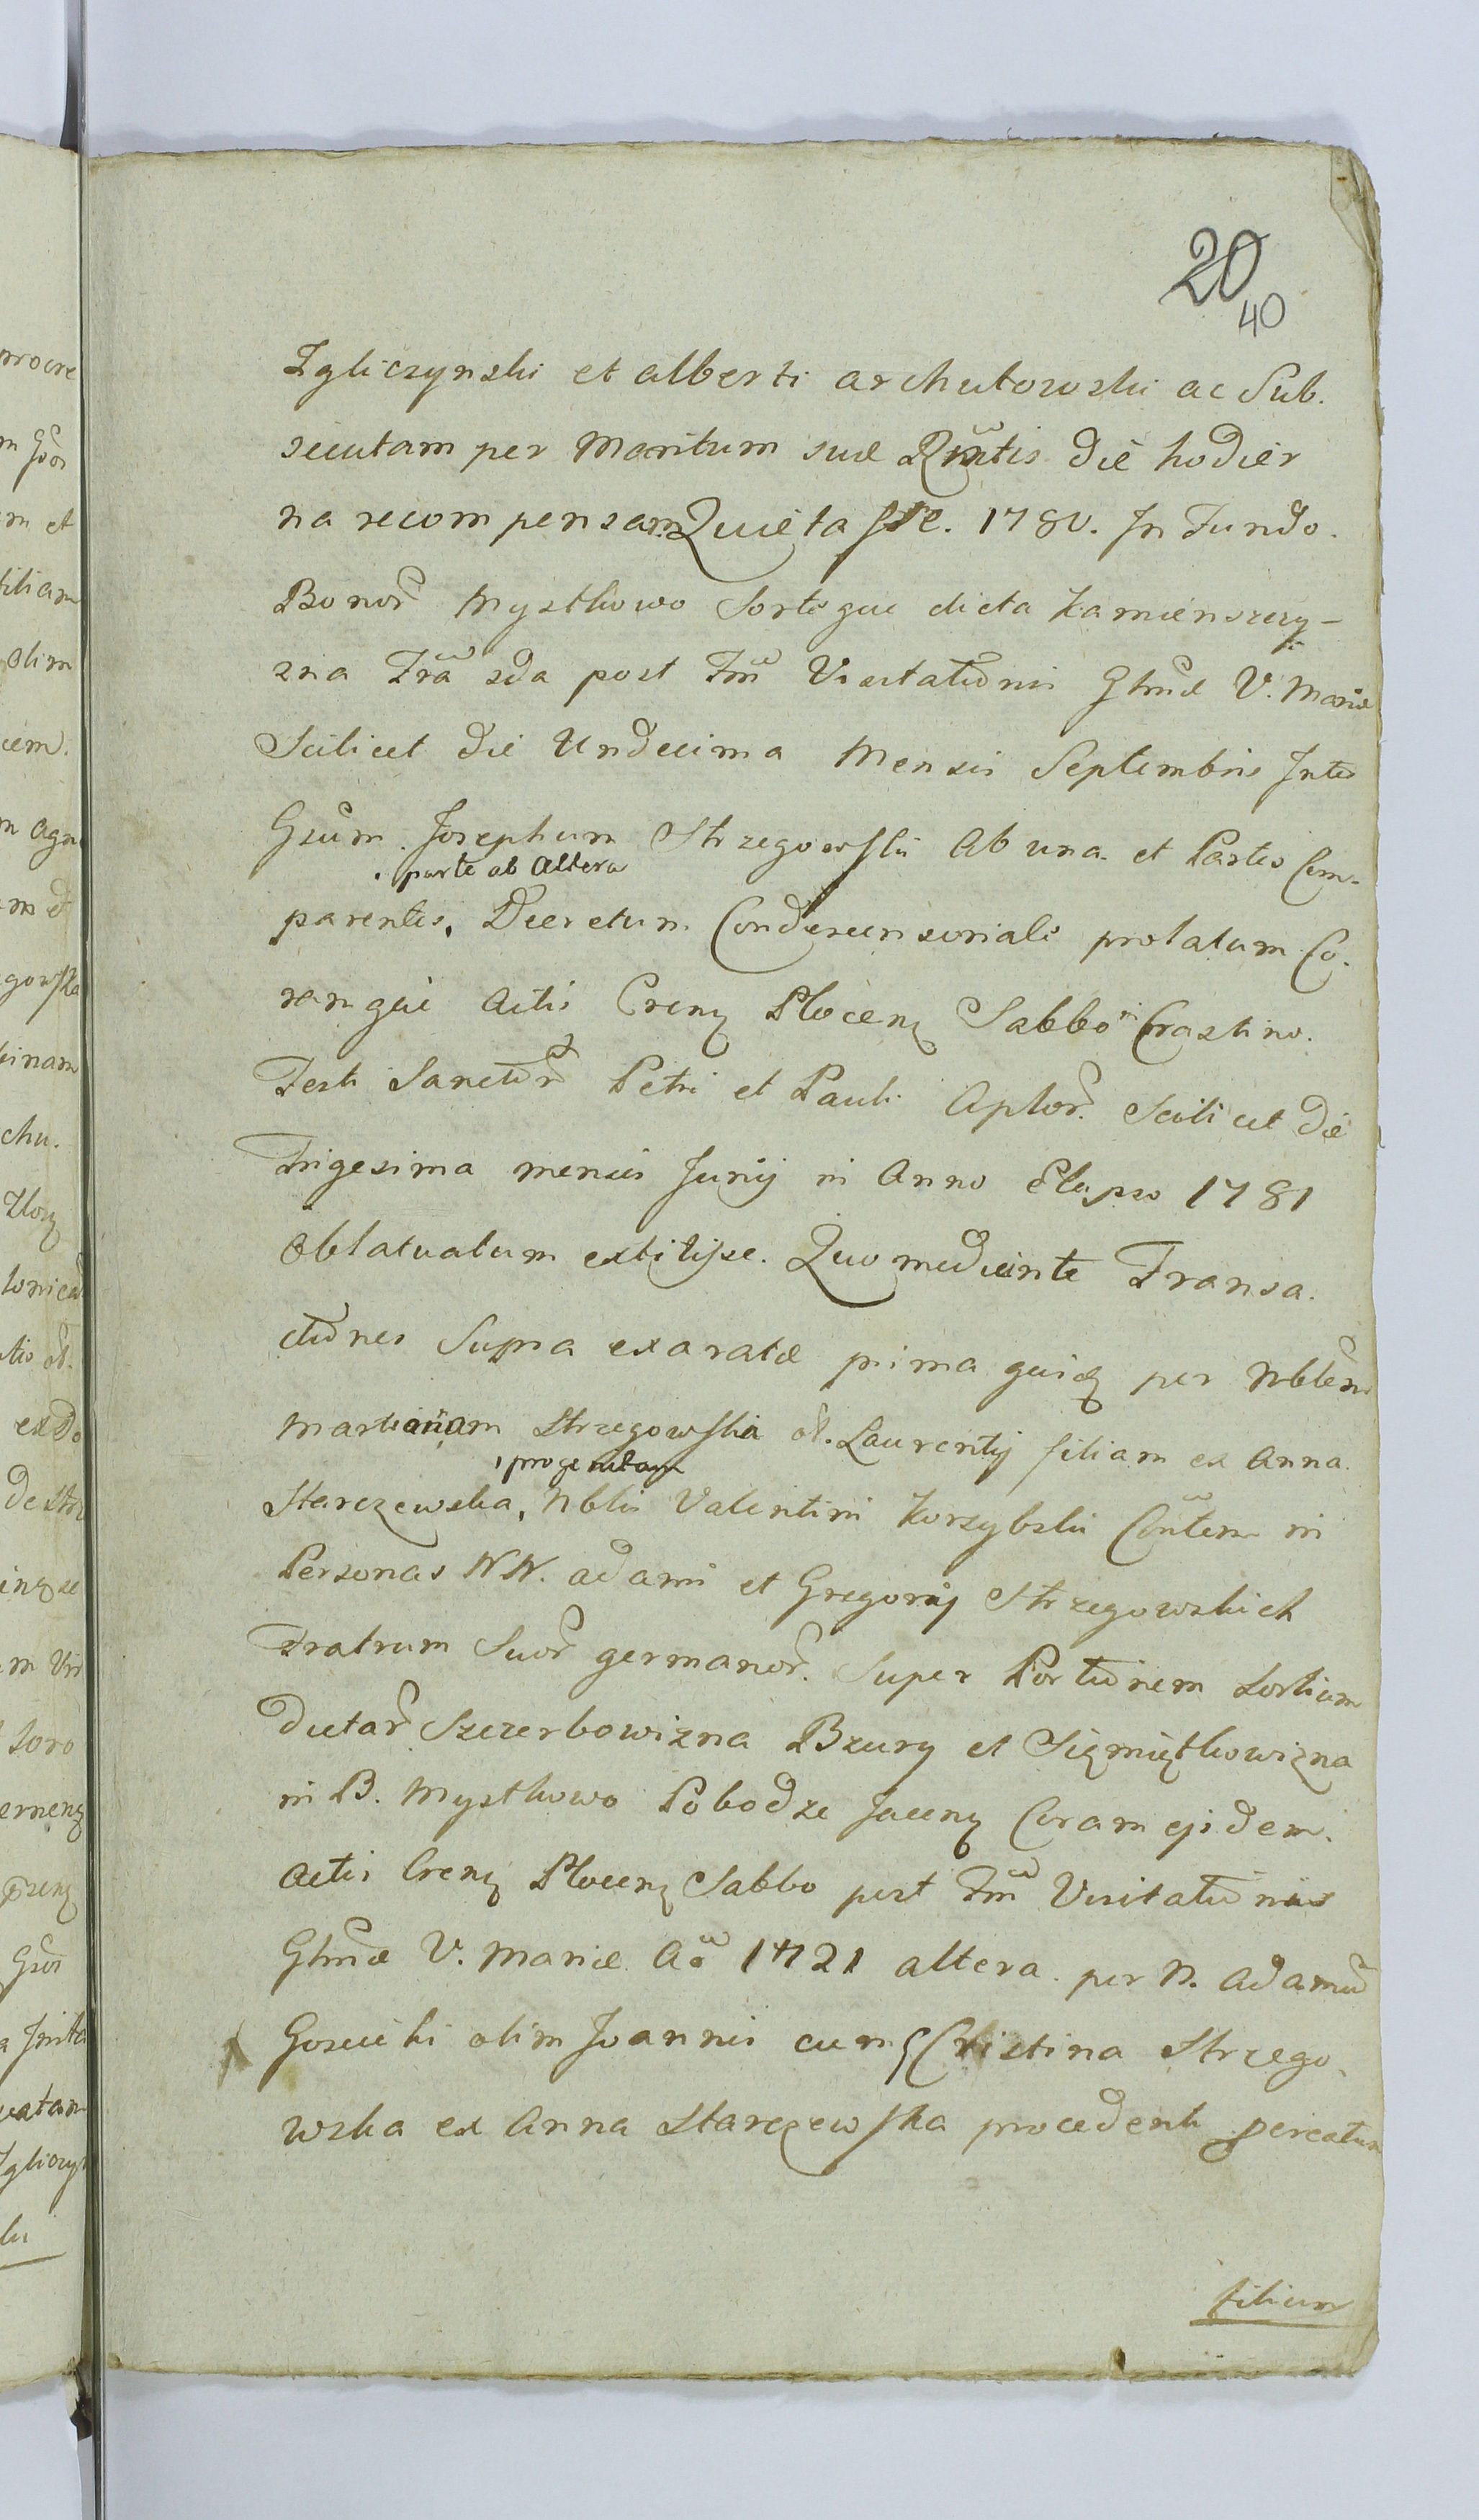 20
40
Zgliczynski et alberti archutowski ac Sub.
secutam per Maritum suæ Rñtis die hodier
na recompensam Quieta sse. 1780. In Fundo.
Bonor Mystkowo Sorteque dicta Kamienszczy-
zna Fra sda post Fm Visitationis Gtnæ V. Mariæ
Scilicet die Undecima Mensis Septembris Inter
Gsum Josephum Strzegowski Ab una et Partes Com-
parte ab Altera
parentes, Decretum Condescensoriale prolatum Co.
ramque Actis Crenz Plocenz Sabbo in Crastino.
Festi Sanctor Petri et Pauli Aplor. Scilicet die
Trigesima mensis Junij in Anno Elapso 1781
Oblatuatum extitisse. Quo mediante Transa.
ctiones Supra exaratæ prima quidz per Nblem
Martianam Strzegowska ol. Laurentij filiam ex Anna
progenitam
Starczewska, Nblis Valentini Korzybski Cõñtem in
Personas NN. adami et Gregorij Strzegowskich
Fratrum Suor germanor. Super Portionem Sortium
dictar Szczerbowizna Bzury et Sięmiętkowizna
in B. Mystkowo Pobodze Jacenz Coram ejsdem.
Actis Crenz Plocenz Sabbo post Fm Visitationis
Gtnæ V. Mariæ Ao 1721 altera per N. Adamu
Goscicki olim Joannis cum Cristina Strzego.
wska ex Anna Starczewska procedenti percatum
filium
procre
m et
filiam
olim
cem.
m Agn
gowska
binam
chu.
ex Do
de Strz
m Vir
soro
Gsor